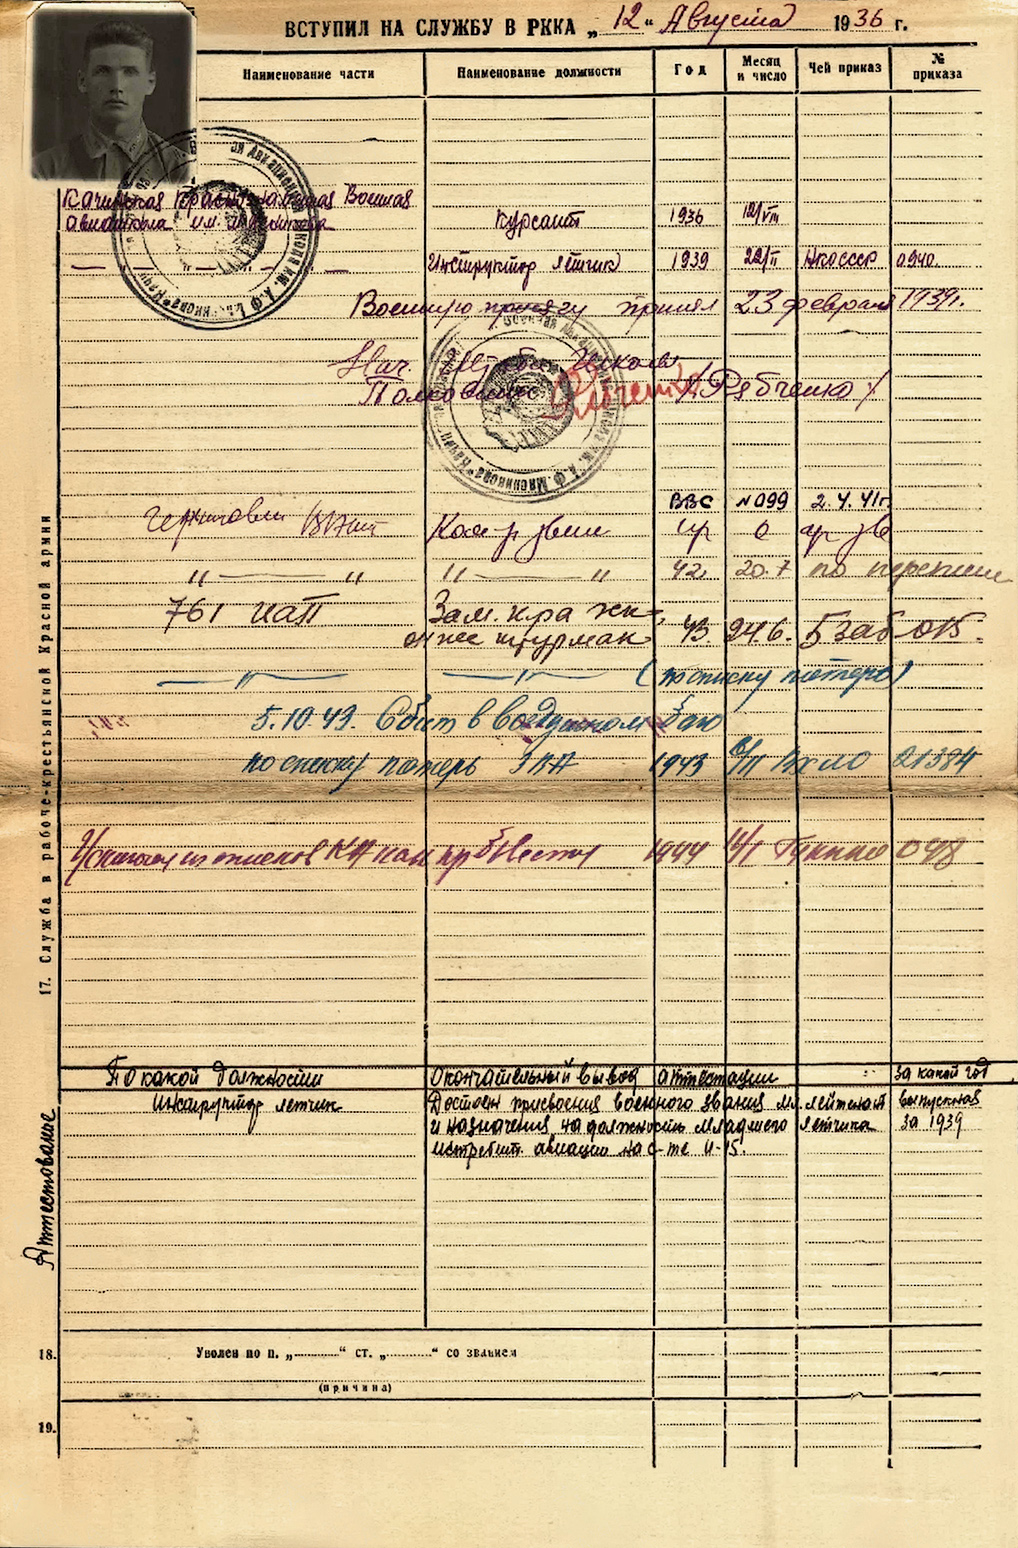 ВСТУПИЛ НА СЛУЖБУ В РККА „12“ Августа 1936 г.
Наименование части Наименование должности Год Месяц и число Чей приказ № приказа
Качинская Краснознаменная Военная
авиашкола им. Мясникова Курсант 1936 12/VIII
— „ — „ — „ — Инструктор летчик 1939 22/II НКОСССР 0940
Военную присягу принял 23 февраля 1939г.
Нач. Штаба Школы
Полковник /Рябченко/
ВВС №099 2.4.41г.
Ком-р звена
„ — „ „ — „ 42 20.7 по переписи
761 иап Зам. к-ра
он же штурман 43. 24.6. 5 заб 015.
— „ — — „ — (по списку потерь)
5.10.43. Сбит в воздушном бою
по списку потерь 1943 Вх 21384
Исключен из списков КА как пр. б/вести 1944 11/I ГУК НКО 048
17. Служба в рабоче-крестьянской Красной армии
По какой должности Окончательный вывод аттестации За какой год
Инструктор летчик Достоин присвоения военного звания мл. лейтенант выпускная
и назначения на должность младшего летчика за 1939
истребит. авиации на с-те И-15.
Аттестование
18. Уволен по п. „.........“ ст. „.........“ со званием
(причина)
19.